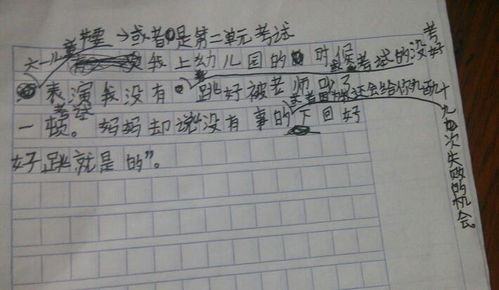 六一儿童 →或者是第二单元考试
我上幼儿园的时候 考试的没好
表演我没有跳好被老师
考试 还会给你九百九十九次失败的机会。
一顿。妈妈却说没有事的下回好
好跳就是的”。